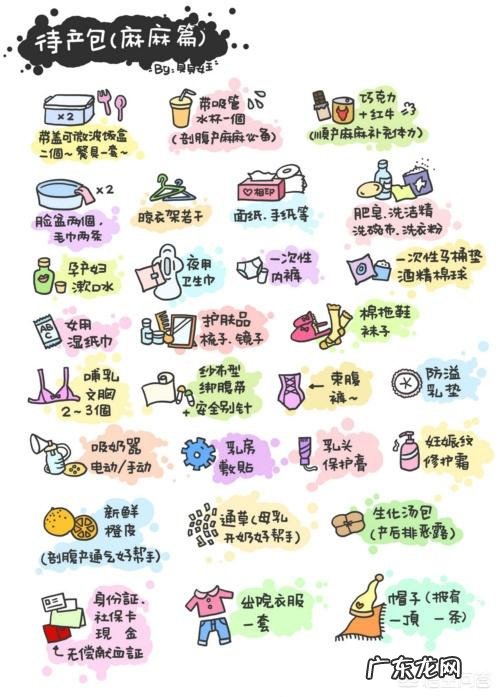 待产包(麻麻篇)
By:貝貝妞
×2
带盖可微波饭盒
二個~餐具一套~
带吸管
水杯一個
(剖腹产麻麻必备)
巧克力
+红牛
(顺产麻麻补充体力)
×2
脸盆两個,
毛巾两条
晾衣架若干
相印
面纸.手纸等
肥皂.洗洁精
洗碗布.洗衣粉
孕产妇
漱口水
夜用
卫生巾
一次性
内裤
一次性马桶垫
酒精棉球
ABC
女用
湿纸巾
护肤品
梳子.镜子
棉拖鞋
袜子
哺乳
文胸
2~3個
纱布型
绑腹带
+安全别针
←束腹
裤~
防溢
乳垫
吸奶器
电动/手动
乳房
敷贴
乳头
保护膏
妊娠纹
修护霜
新鲜
橙皮
(剖腹产通气好帮手)
通草(母乳
开奶好帮手)
生化汤包
(产后排恶露)
身份証.
社保卡
現金
无偿献血証
出院衣服
一套
帽子(披肩
一頂 一条)
广东龙网